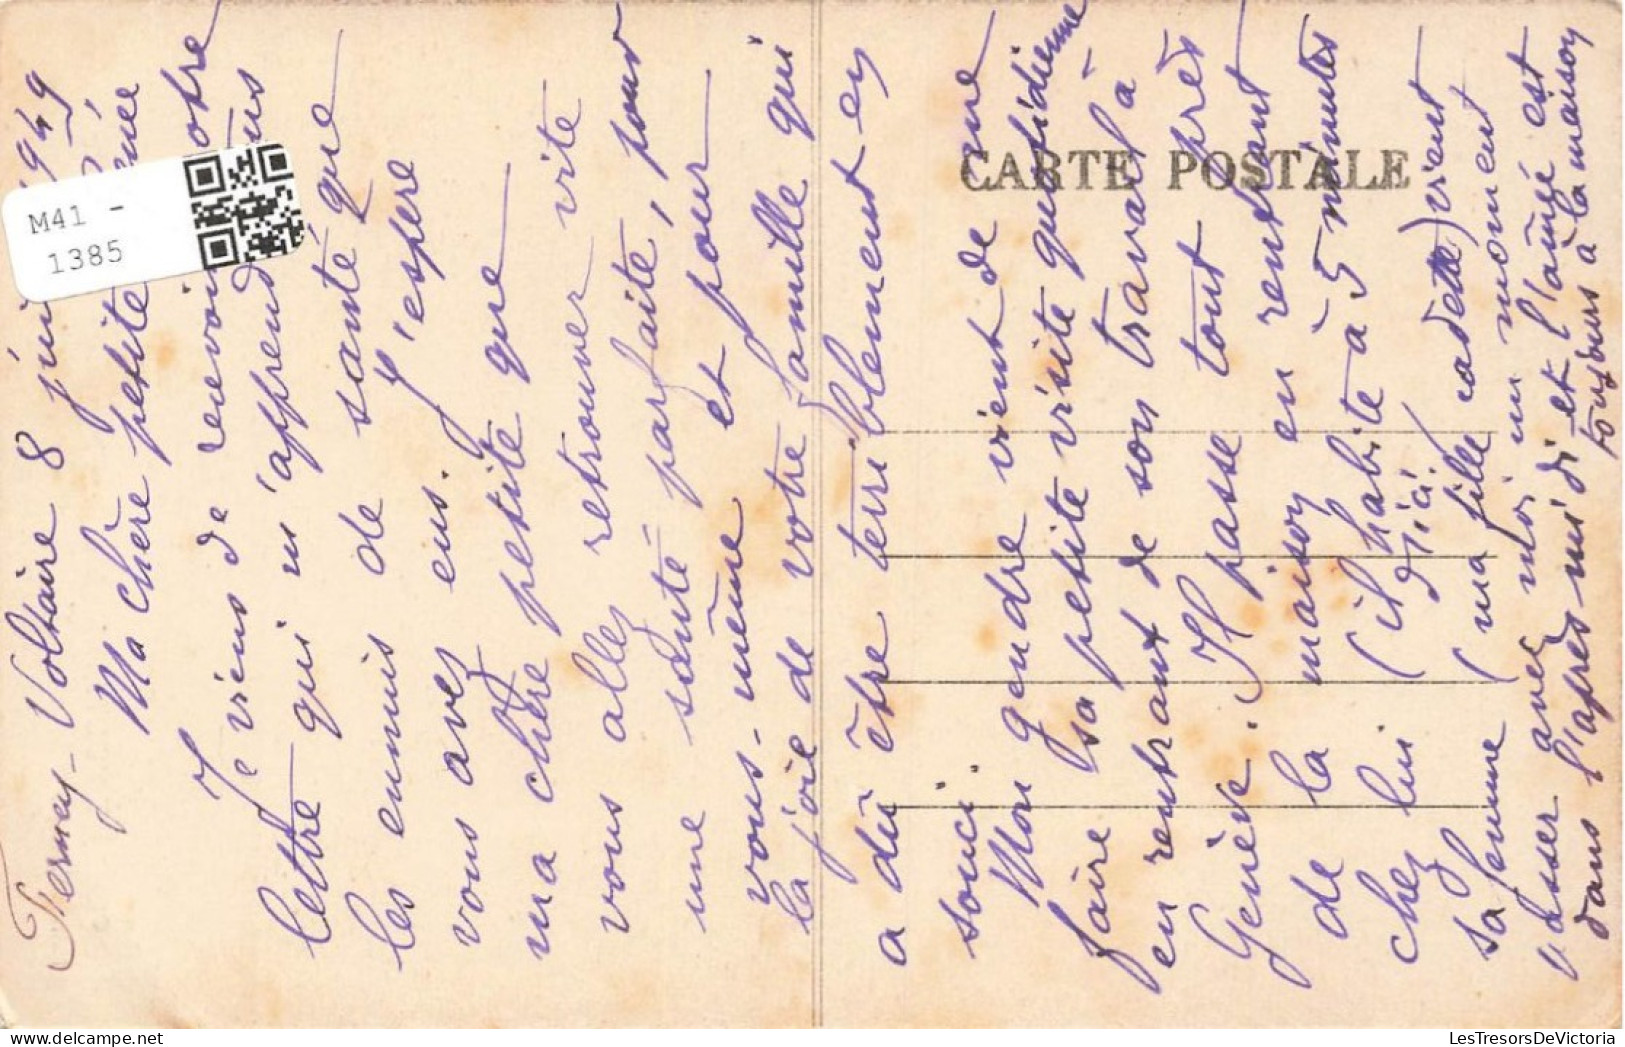 Ferney-Voltaire 8 jui 1949
Ma chère petite
Je viens de revoir votre
lettre qui m'apprend
les ennuis de santé que
vous avez eus. J'espère
ma chère petite que
vous allez retrouver vite
une santé parfaite, pour
vous-même et pour
la joie de votre famille qui
a dû être terriblement en
souci.
Mon gendre vient de me
faire sa petite visite quotidienne
en rentrant de son travail à
Genève. Il passe tout près
de la maison en rentrant
chez lui (il habite à 5 minutes
d'ici.
sa femme (ma fille cadette) vient
passer avec moi un moment
dans l'après midi et l'aînée est
toujours à la maison
CARTE POSTALE
M41 -
1385
LesTresorsDeVictoria